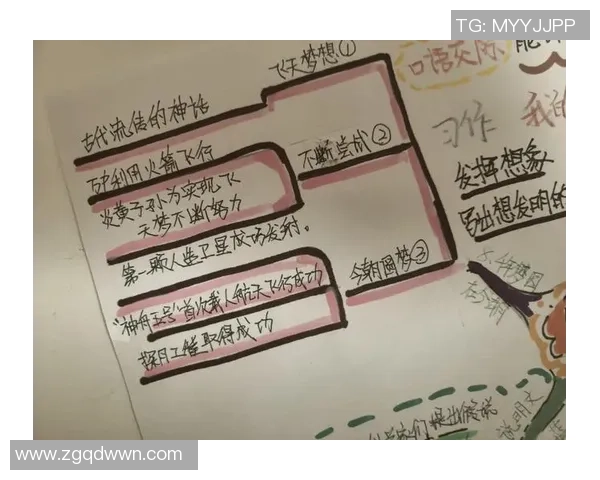 TG: MYYJJPP
飞天梦想①
古代流传的神话
万户利用火箭飞行
不断尝试②
炎黄子孙为实现飞
天梦不断努力
第一颗人造卫星成功发射。
今朝圆梦③
"神舟五号"首次载人航天飞行成功
探月工程取得成功
口语交际
习作
我的
发挥想象
写出想发明的
提出假说
说明文
www.zgqdwwn.com